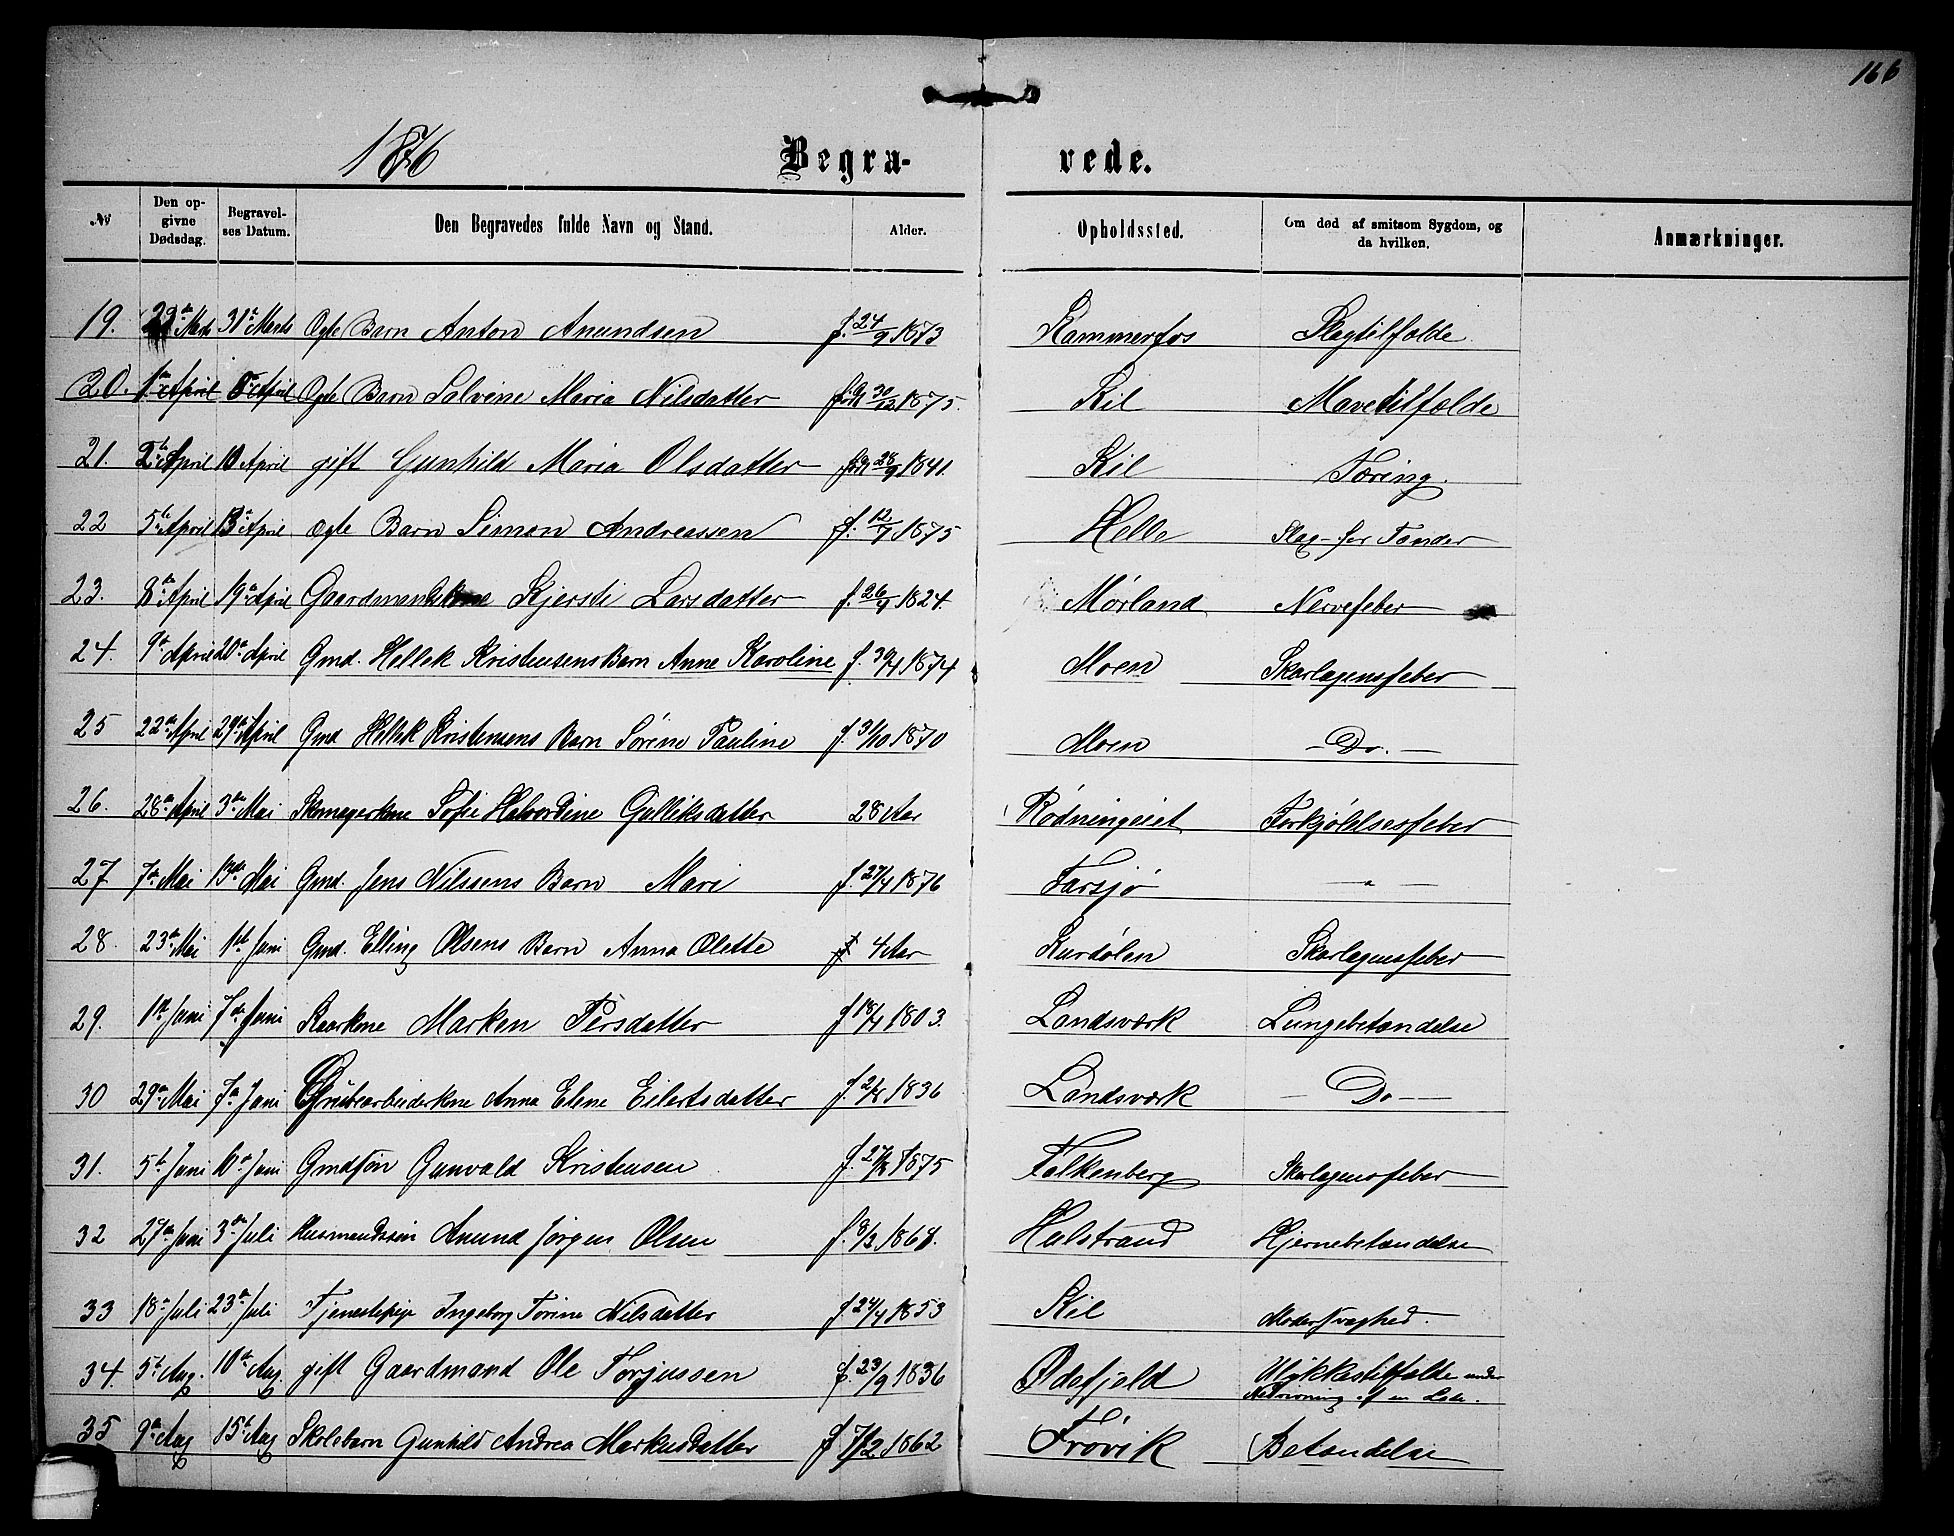 166
1876
Begra- vede.
№ Den opgivne Dødsdag. Begravelses Datum. Den Begravedes fulde Navn og Stand. Alder. Opholdssted. Om død af smitsom Sygdom, og da hvilken. Anmærkninger.
19. 29de Marts 31te Marts Ægte Barn Anton Anundsen f. 24/9 1873 Kammerfos Slagtilfælde
20. 1ste April April Ægte Barn Salvine Maria Nilsdatter 30/12 1875. Kil Mavetilfælde
21. 2den April April gift Gunhild Maria Olsdatter 28/9 1841. Kil Tæring.
22 5te April 13de April ægte Barn Simon Andreassen f. 12/7 1875 Helle Slag for Tænder
23. 8de April 19de April Gaardmandskone Kjersti Larsdatter f. 26/9 1824. Mørland Nervefeber
24. 9de April 20de April Gmd. Hellek Kristensens Barn Anne Karoline f. 30/4 1874 Moen Skarlagensfeber
25 22de April 29de April Gmd Hellek Kristensens Barn Sørine Pauline f. 31/10 1870 Moen – Do. –
26. 28de April 3die Mai Skomagerkone Sofie Halvordine Gulliksdatter 28 Aar Rødningeiet Forkjølelsesfeber
27 7de Mai 13de Mai Gmd. Jens Nilssens Barn Mari f. 27/4 1876 Farsjø – " –
28. 23de Mai 1ste Juni Gmd. Elling Olsens Barn Anna Olette f 4 Aar Kurdølen Skarlagensfeber
29. 1ste Juni 7de Juni Kaarkone Marken Persdatter f 18/4 1803. Landsværk Lungebetændelse
30 29de Mai 7de Juni Grubearbeiderkone Anna Elene Eilertsdatter 1836 Landsværk – Do –
31. 5te Juni 10de Juni Gmdsøn Gunvald Kristensen 1875 Falkenberg Skarlagensfeber
32 27de Juni 3die Juli Husmandssøn Anund Jørgen Olsen Halstrand Hjernebetændelse
33 18de Juli 23de Juli Tjenestepige Ingeborg Torine Nilsdatter f. 24/4 1853 Kil Modersvaghed.
34. 5te Aug. 10de Aug. gift Gaardmand Ole Torjussen f. 23/9 1836 Ødefjeld Ulykkestilfælde under
Nedrivning af en Lade.
35 9de Aug 15de Aug Skolebarn Gunhild Andrea Markusdatter f 7/2 1862 Frøvik Betændelse